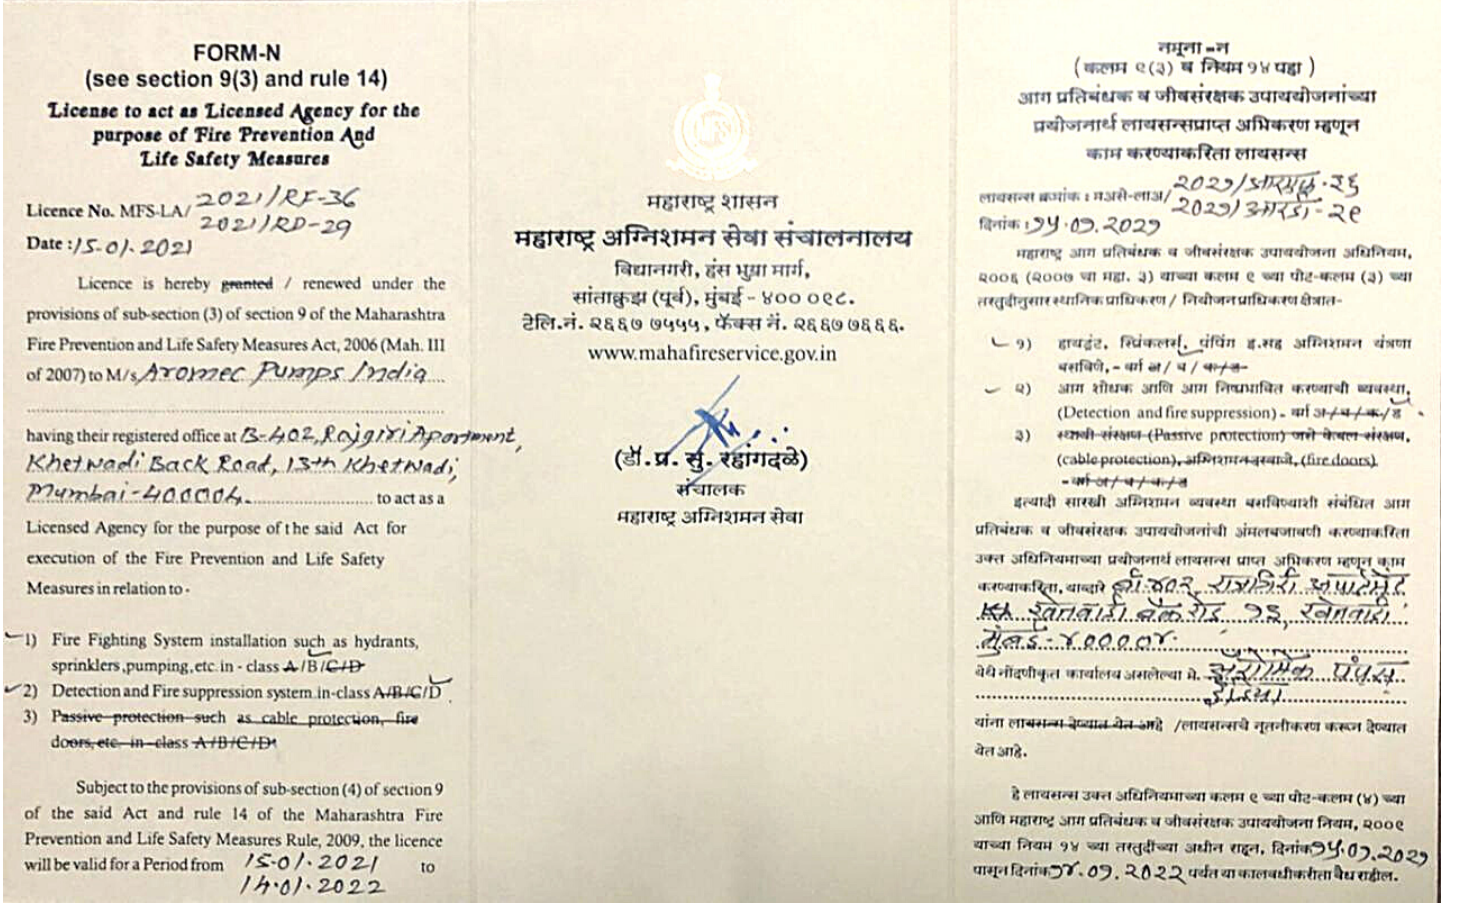 FORM-N
(see section 9(3) and rule 14)
License to act as Licensed Agency for the
purpose of Fire Prevention And
Life Safety Measures
Licence No. MFS-LA/ 2021/RF-36
2021/RD-29
Date : 15.01.2021
Licence is hereby granted / renewed under the
provisions of sub-section (3) of section 9 of the Maharashtra
Fire Prevention and Life Safety Measures Act, 2006 (Mah. III
of 2007) to M/s. Aromec Pumps India
having their registered office at B-402, Rajgiri Apartment,
Khetwadi Back Road, 13th Khetwadi,
Mumbai-400004. to act as a
Licensed Agency for the purpose of the said Act for
execution of the Fire Prevention and Life Safety
Measures in relation to -
1) Fire Fighting System installation such as hydrants,
sprinklers, pumping, etc. in - class A/B/C/D
2) Detection and Fire suppression system in-class A/B/C/D
3) Passive protection such as cable protection, fire
doors, etc. in-class A/B/C/D
Subject to the provisions of sub-section (4) of section 9
of the said Act and rule 14 of the Maharashtra Fire
Prevention and Life Safety Measures Rule, 2009, the licence
will be valid for a Period from 15.01.2021 to
14.01.2022
महाराष्ट्र शासन
महाराष्ट्र अग्निशमन सेवा संचालनालय
विद्यानगरी, हंस भुग्रा मार्ग,
सांताक्रुझ (पूर्व), मुंबई - ४०० ०९८.
टेलि.नं. २६६७ ७५५५, फॅक्स नं. २६६७ ७६६६.
www.mahafireservice.gov.in
(डॉ. प्र. सु. रहांगदळे)
संचालक
महाराष्ट्र अग्निशमन सेवा
नमूना -न
(कलम ९(३) व नियम १४ पहा)
आग प्रतिबंधक व जीवसंरक्षक उपाययोजनांच्या
प्रयोजनार्थ लायसन्सप्राप्त अभिकरण म्हणून
काम करण्याकरिता लायसन्स
लायसन्स क्रमांक : मअसे-लाअ/ २०२१/आरएफ-३६
२०२१/आरडी-२९
दिनांक : १५.०१.२०२१
महाराष्ट्र आग प्रतिबंधक व जीवसंरक्षक उपाययोजना अधिनियम,
२००६ (२००७ चा महा. ३) याच्या कलम ९ च्या पोट-कलम (३) च्या
तरतुदीनुसार स्थानिक प्राधिकरण / नियोजन प्राधिकरण क्षेत्रात-
१) हायड्रंट, स्प्रिंकलर्स, पंपिंग इ.सह अग्निशमन यंत्रणा
बसविणे, - वर्ग अ / ब / क / ड
२) आग शोधक आणि आग निष्प्रभावित करण्याची व्यवस्था,
(Detection and fire suppression) - वर्ग अ/ब/क/ड
३) स्थायी संरक्षण (Passive protection) जसे केबल संरक्षण,
(cable protection), अग्निशमन दरवाजे, (fire doors)
- वर्ग अ / ब / क / ड
इत्यादी सारखी अग्निशमन व्यवस्था बसविण्याशी संबंधित आग
प्रतिबंधक व जीवसंरक्षक उपाययोजनांची अंमलबजावणी करण्याकरिता
उक्त अधिनियमाच्या प्रयोजनार्थ लायसन्स प्राप्त अभिकरण म्हणून काम
करण्याकरिता, याव्दारे बी-४०२, राजगिरी अपार्टमेंट
खेतवाडी बॅक रोड, १३, खेतवाडी
मुंबई-४००००४.
येथे नोंदणीकृत कार्यालय असलेल्या मे. अरोमेक पंपस्
इंडिया
यांना लायसन्स देण्यात येत आहे /लायसन्सचे नूतनीकरण करून देण्यात
येत आहे.
हे लायसन्स उक्त अधिनियमाच्या कलम ९ च्या पोट-कलम (४) च्या
आणि महाराष्ट्र आग प्रतिबंधक व जीवसंरक्षक उपाययोजना नियम, २००९
याच्या नियम १४ च्या तरतुदींच्या अधीन राहून, दिनांक १५.०१.२०२१
पासून दिनांक १४.०१.२०२२ पर्यंत या कालावधीकरीता वैध राहील.